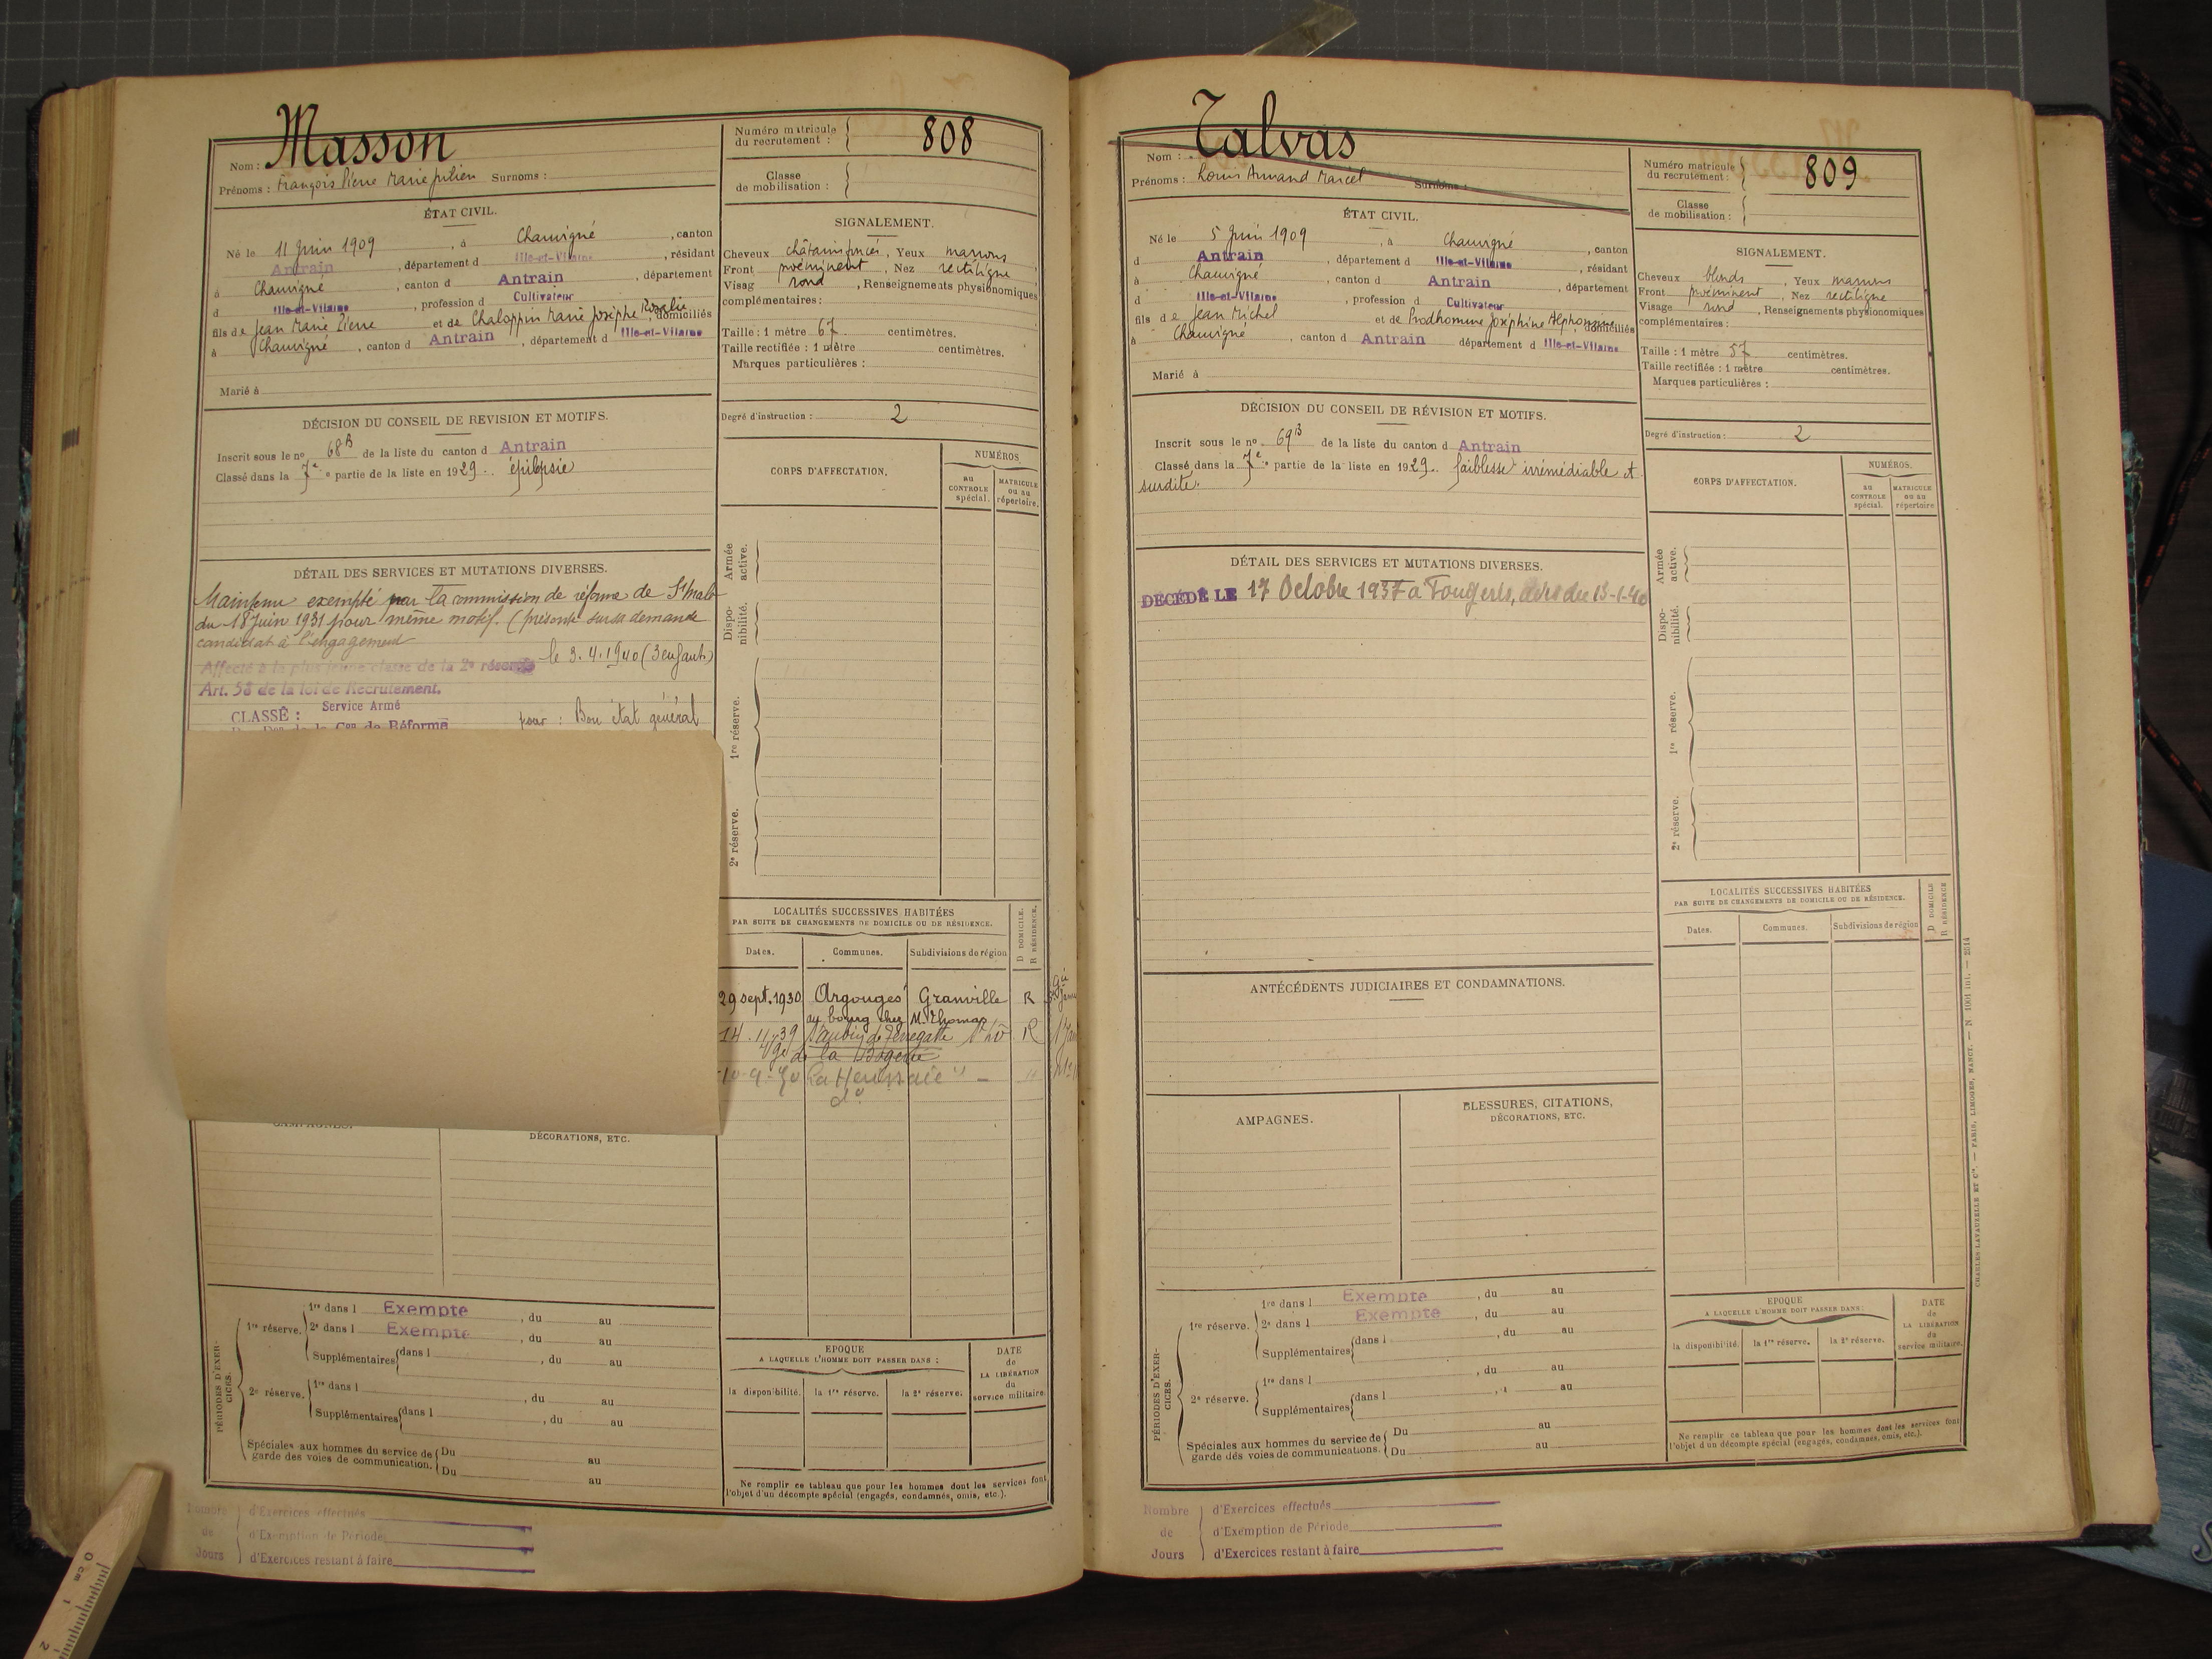 Masson
Nom :
Prénoms : François Pierre Marie Julien Surnoms :
Numéro matricule du recrutement : 808
Classe de mobilisation :
ÉTAT CIVIL.
Né le 11 Juin 1909, à Chauvigné, canton
Antrain, département d Ille-et-Vilaine, résidant
à Chauvigné, canton d Antrain, département
d Ille-et-Vilaine, profession d Cultivateur
fils de Jean Marie Pierre et de Marie Josèphe Rosalie, domiciliés
à Chauvigné, canton d Antrain, département d Ille-et-Vilaine
Marié à
SIGNALEMENT.
Cheveux châtains foncés, Yeux marrons
Front proéminent, Nez rectiligne
Visag rond, Renseignements physionomiques
complémentaires :
Taille : 1 mètre 67 centimètres.
Taille rectifiée : 1 mètre centimètres.
Marques particulières :
Degré d'instruction : 2
DÉCISION DU CONSEIL DE REVISION ET MOTIFS.
Inscrit sous le no 68 B de la liste du canton d Antrain
Classé dans la 7e partie de la liste en 1929. épilepsie
CORPS D'AFFECTATION.
NUMÉROS
au CONTROLE spécial.
MATRICULE ou au répertoire.
Armée active.
Disponibilité.
1re réserve.
2e réserve.
DÉTAIL DES SERVICES ET MUTATIONS DIVERSES.
Maintenu exempté par la commission de réforme de St Malo
du 18 Juin 1931 pour même motif. (présenté sur sa demande
candidat à l'engagement
Affecté à la plus jeune classe de la 2e réserve le 3.4.1940 (3 enfants)
Art. 58 de la loi de Recrutement.
CLASSÉ : Service Armé
de la Con de Réforme pour : Bon état général
LOCALITÉS SUCCESSIVES HABITÉES
PAR SUITE DE CHANGEMENTS DE DOMICILE OU DE RÉSIDENCE.
D DOMICILE.
R RÉSIDENCE.
Dates. Communes. Subdivisions de région
29 sept. 1930 Argouges Granville R
au bourg chez M. Thomas
14.11.39 St Lô R
La
do
CAMPAGNES.
DÉCORATIONS, ETC.
PÉRIODES D'EXERCICES.
1re réserve. 1re dans l Exempté, du au
2e dans l Exempté, du au
Supplémentaires dans l, du au
2e réserve. 1re dans l, du au
Supplémentaires dans l, du au
Spéciales aux hommes du service de garde des voies de communication. Du au
Du au
EPOQUE
A LAQUELLE L'HOMME DOIT PASSER DANS :
la disponibilité. la 1re réserve. la 2e réserve.
DATE de LA LIBÉRATION du service militaire.
Ne remplir ce tableau que pour les hommes dont les services font
l'objet d'un décompte spécial (engagés, condamnés, omis, etc.).
Nombre de Jours
d'Exercices effectués
d'Exemption de Période
d'Exercices restant à faire
0 cm 1 2
Talvas
Nom :
Prénoms : Louis Armand Marcel Surnoms :
Numéro matricule du recrutement : 809
Classe de mobilisation :
ÉTAT CIVIL.
Né le 5 Juin 1909, à Chauvigné, canton
d Antrain, département d Ille-et-Vilaine, résidant
à Chauvigné, canton d Antrain, département
d Ille-et-Vilaine, profession d Cultivateur
fils de Jean Michel et de Prodhomme Joséphine Alphonsine, domiciliés
à Chauvigné, canton d Antrain département d Ille-et-Vilaine
Marié à
SIGNALEMENT.
Cheveux blonds, Yeux marrons
Front proéminent, Nez rectiligne
Visage rond, Renseignements physionomiques
complémentaires :
Taille : 1 mètre 57 centimètres.
Taille rectifiée : 1 mètre centimètres.
Marques particulières :
Degré d'instruction : 2
DÉCISION DU CONSEIL DE RÉVISION ET MOTIFS.
Inscrit sous le no 69 B de la liste du canton d Antrain
Classé dans la 7e partie de la liste en 1929. faiblesse irrémédiable et
surdité.
CORPS D'AFFECTATION.
NUMÉROS.
au CONTROLE spécial.
MATRICULE ou au répertoire
Armée active.
Disponibilité.
1re réserve.
2e réserve.
DÉTAIL DES SERVICES ET MUTATIONS DIVERSES.
DÉCÉDÉ LE 17 Octobre 1937 à Fougères, avis du 15-1-40
ANTÉCÉDENTS JUDICIAIRES ET CONDAMNATIONS.
AMPAGNES.
BLESSURES, CITATIONS,
DÉCORATIONS, ETC.
LOCALITÉS SUCCESSIVES HABITÉES
PAR SUITE DE CHANGEMENTS DE DOMICILE OU DE RÉSIDENCE.
D DOMICILE
R RÉSIDENCE
Dates. Communes. Subdivisions de région
PÉRIODES D'EXERCICES.
1re réserve. 1re dans l Exempte, du au
2e dans l Exempte, du au
Supplémentaires dans l, du au
, du au
2e réserve. 1re dans l
Supplémentaires dans l au
Spéciales aux hommes du service de garde des voies de communications. Du au
Du au
EPOQUE
A LAQUELLE L'HOMME DOIT PASSER DANS :
la disponibilité. la 1re réserve. la 2e réserve.
DATE de LA LIBÉRATION du service militaire.
Ne remplir ce tableau que pour les hommes dont les services font
l'objet d'un décompte spécial (engagés, condamnés, omis, etc.).
Nombre de Jours
d'Exercices effectués
d'Exemption de Période
d'Exercices restant à faire
CHARLES-LAVAUZELLE ET Cie. — PARIS, LIMOGES, NANCY. — N 1001 — 2514